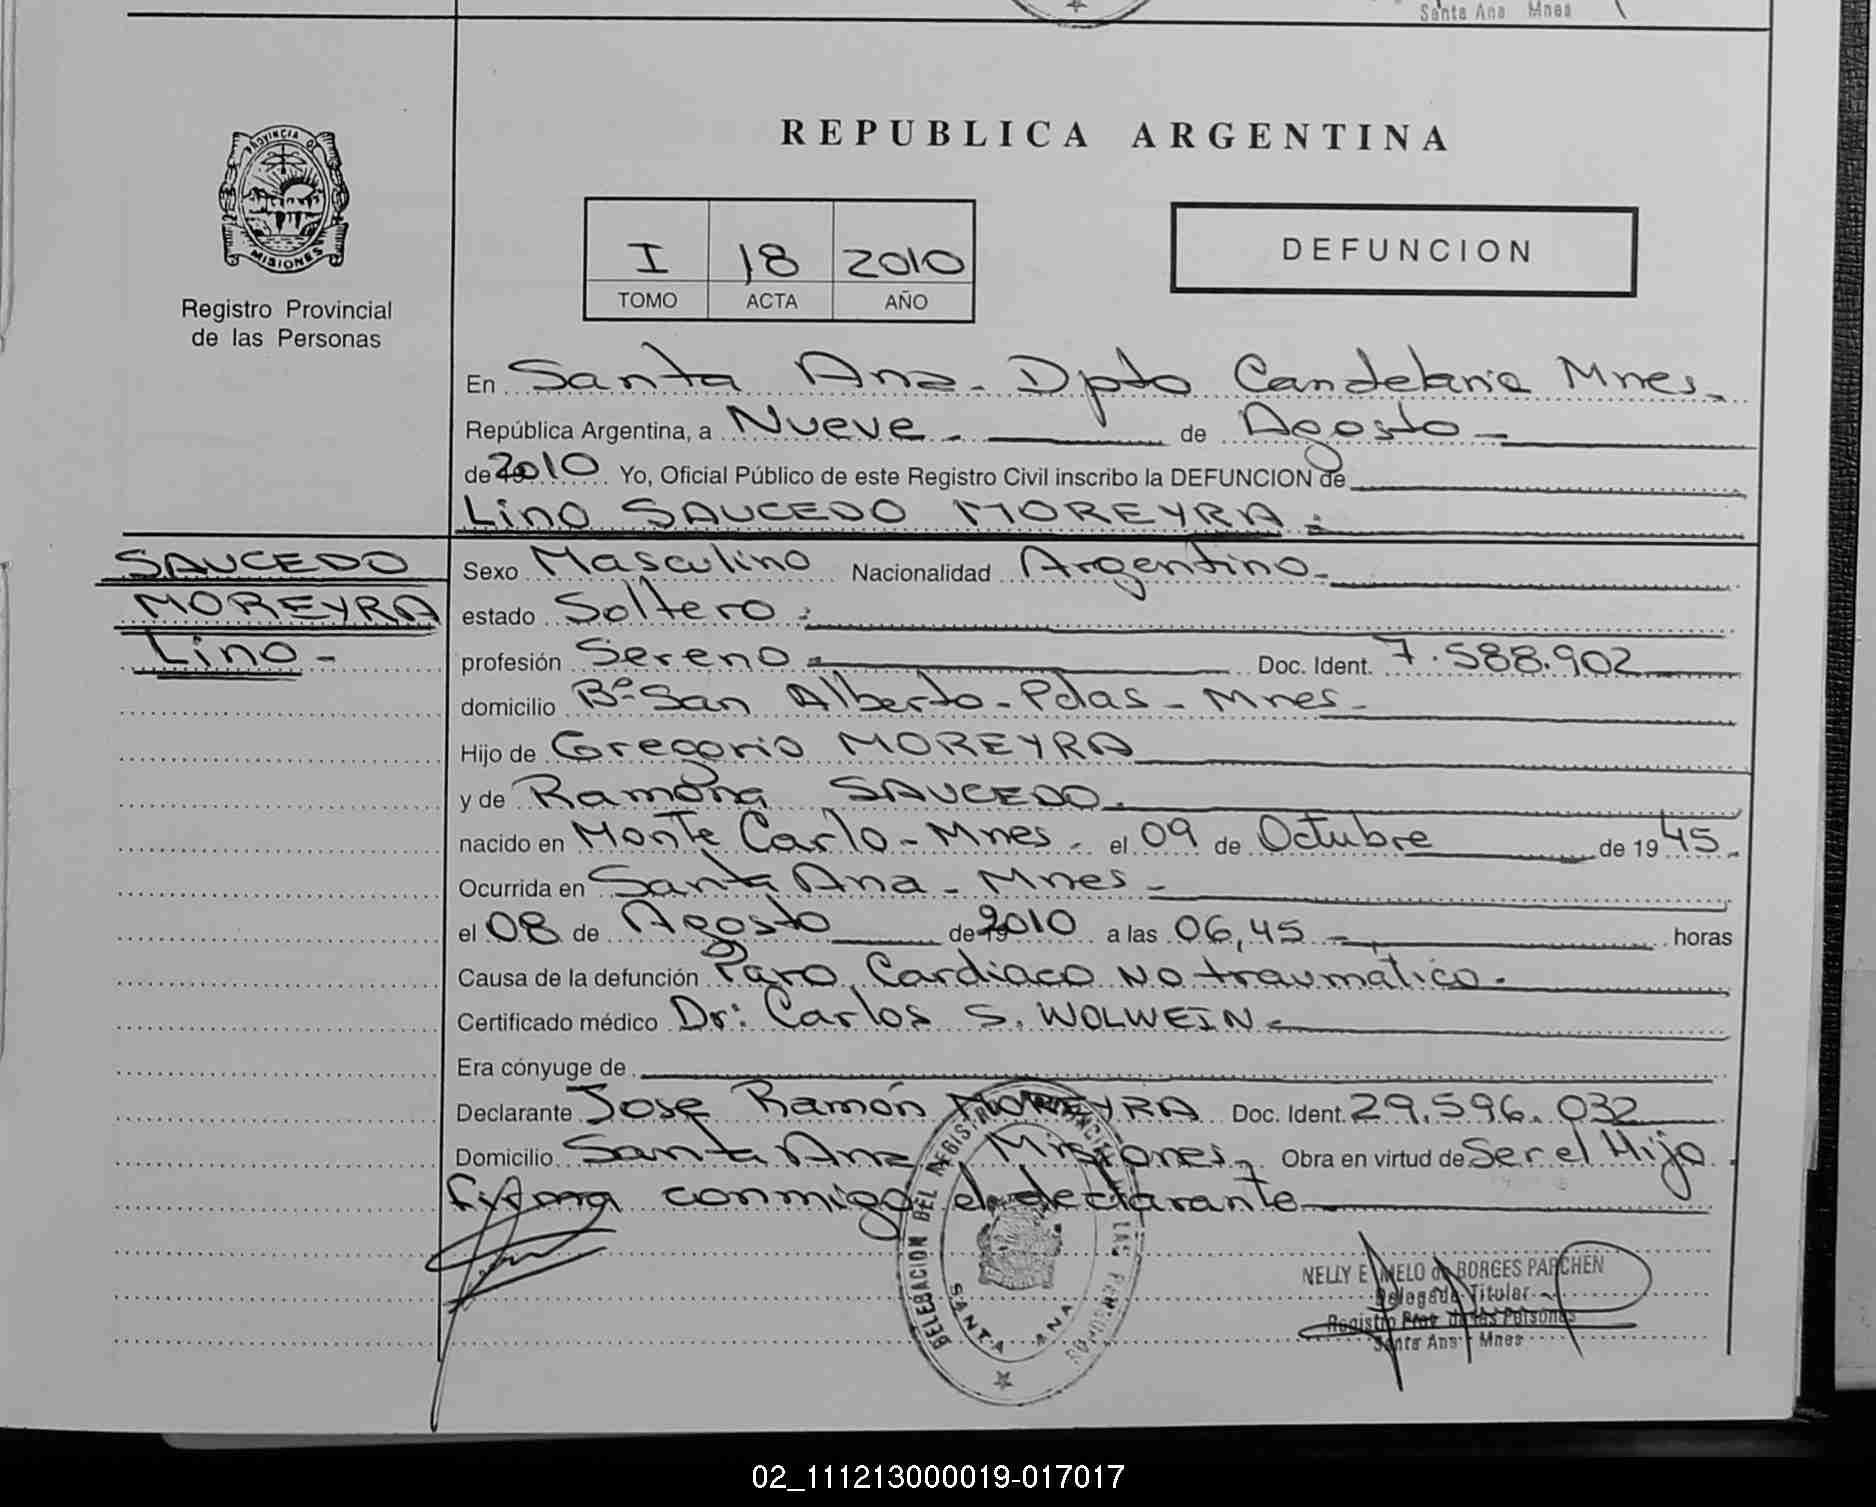 Santa Ana Mnes
PROVINCIA DE
MISIONES
Registro Provincial
de las Personas
REPUBLICA ARGENTINA
I 18 2010
TOMO ACTA AÑO
DEFUNCION
En Santa Ana - Dpto Candelaria Mnes.
República Argentina, a Nueve - de Agosto -
de 2010 Yo, Oficial Público de este Registro Civil inscribo la DEFUNCION de
Lino SAUCEDO MOREYRA.
SAUCEDO
MOREYRA
Lino -
Sexo Masculino Nacionalidad Argentino -
estado Soltero.
profesión Sereno Doc. Ident. 7.588.902
domicilio Bº San Alberto - Pdas - Mnes -
Hijo de Gregorio MOREYRA
y de Ramona SAUCEDO.
nacido en Monte Carlo - Mnes - el 09 de Octubre de 1945.
Ocurrida en Santa Ana - Mnes -
el 08 de Agosto de 2010 a las 06,45 - horas
Causa de la defunción Paro Cardiaco no traumático.
Certificado médico Dr: Carlos S. WOLWEIN.
Era cónyuge de
Declarante José Ramón MOREYRA Doc. Ident. 29.596.032
Domicilio Santa Ana Misiones - Obra en virtud de Ser el Hijo
firma conmigo el declarante
DELEGACION DEL REGISTRO PROVINCIAL DE LAS PERSONAS
SANTA ANA
NELLY E. MELO de BORGES PARCHEN
Delegada Titular
Registro Prov. de las Personas
Santa Ana - Mnes
02_111213000019-017017